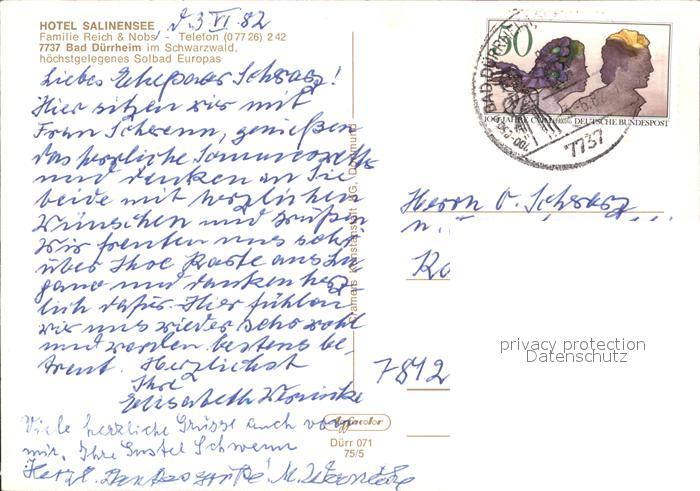 HOTEL SALINENSEE
Familie Reich & Nobs - Telefon (0 77 26) 2 42
7737 Bad Dürrheim im Schwarzwald,
höchstgelegenes Solbad Europas
d. 3 VI 82
Liebes Ehepaar Schwarz!
Hier sitzen wir mit
Frau Schwenn, genießen
das herrliche Sommerwetter
und denken an Sie
beide mit herzlichen
Wünschen und Grüßen
Wir freuten uns sehr
über Ihre Karte aus Lu-
gano und danken herz-
lich dafür. Hier fühlen
wir uns wieder sehr wohl
und werden bestens be-
treut. Herzlichst
Ihre
Elisabeth
Viele herzliche Grüsse auch von
mir, Ihre Gustel Schwenn
Herzl. M.
Cramers Kunstanstalt KG, Dortmund
Agfacolor
Dürr 071
75/5
90
100 JAHRE DEUTSCHE BUNDESPOST
BAD DÜRRHEIM
7737
Herrn O. Schwarz
u.
7842
privacy protection
Datenschutz